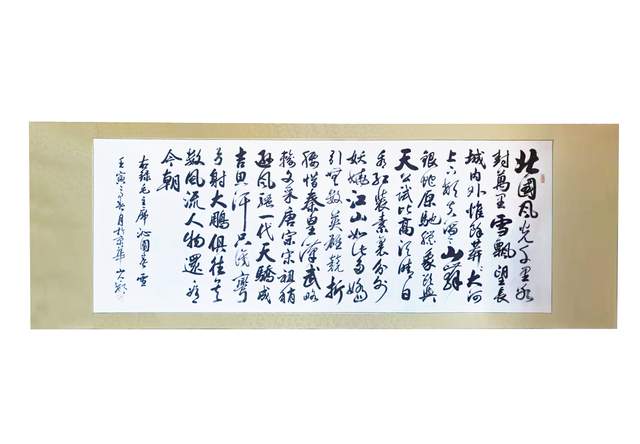 北國風光千里冰
封萬里雪飄望長
城内外惟餘莽莽大河
上下頓失滔滔山舞
銀蛇原馳蠟象欲與
天公試比高須晴日
看紅裝素裹分外
妖嬈江山如此多嬌
引無數英雄競折
腰惜秦皇漢武略
輸文采唐宗宋祖稍
遜風騷一代天驕成
吉思汗只識彎
弓射大鵰俱往矣
數風流人物還看
今朝
右録毛主席沁園春雪
壬寅春月於京華